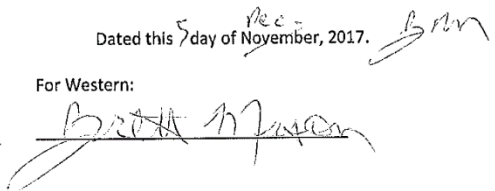 Dec.
Dated this 5 day of November, 2017. BMM
For Western:
Brett Maxon